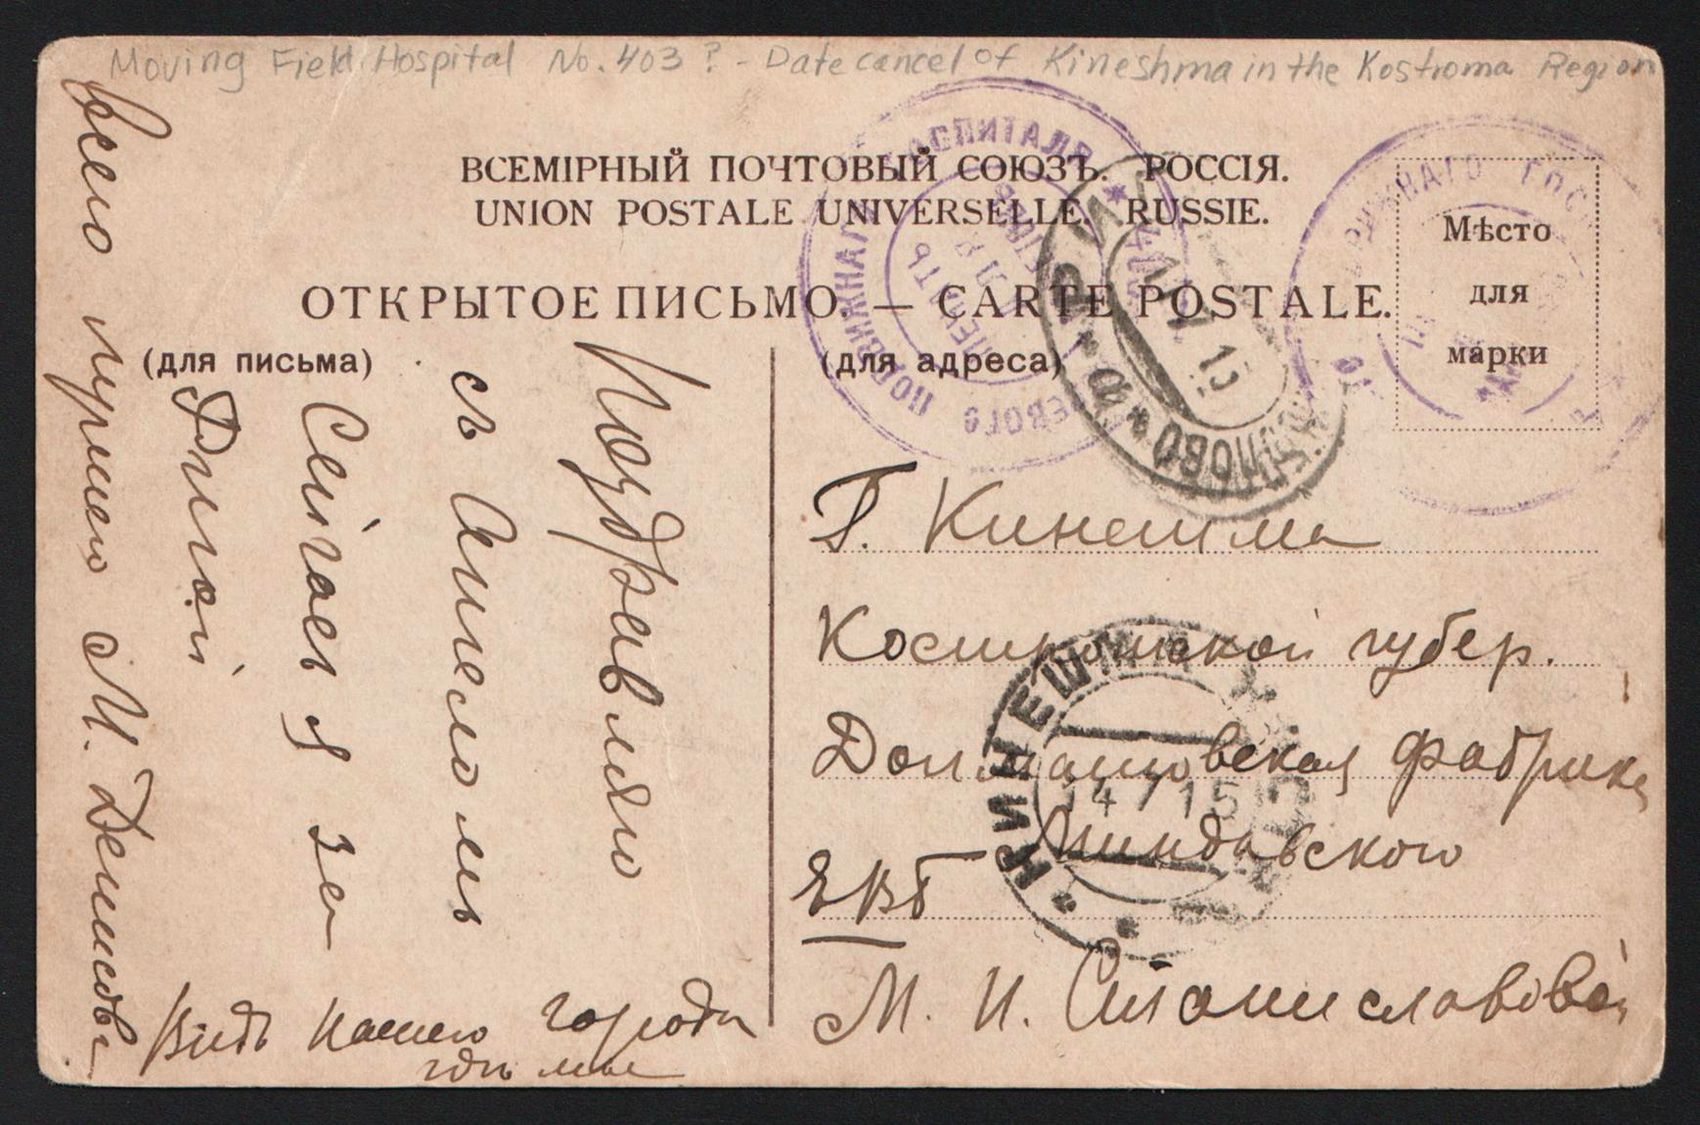 Moving Field Hospital No. 403? - Date cancel of Kineshma in the Kostroma Region
ВСЕМІРНЫЙ ПОЧТОВЫЙ СОЮЗЪ. РОССІЯ.
UNION POSTALE UNIVERSELLE. RUSSIE.
ОТКРЫТОЕ ПИСЬМО. — CARTE POSTALE.
(для письма)
(для адреса)
Мѣсто
для
марки
Поздравляю
съ Ангеломъ
за
Всего лучшаго М. Денисовъ
Видъ нашего города
гдѣ мы
Г. Кинешма
Костромской губер.
фабрика
ЕВБ
М. И. Станиславовой
ПОДВИЖНАГО ГОСПИТАЛЯ
КИНЕШМА
14 15